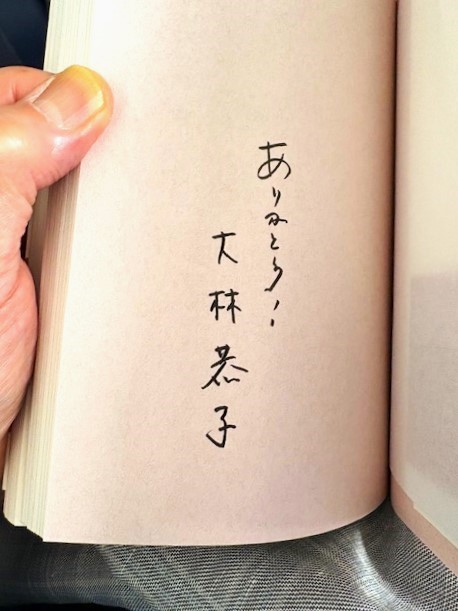 ありがとう!
大林恭子